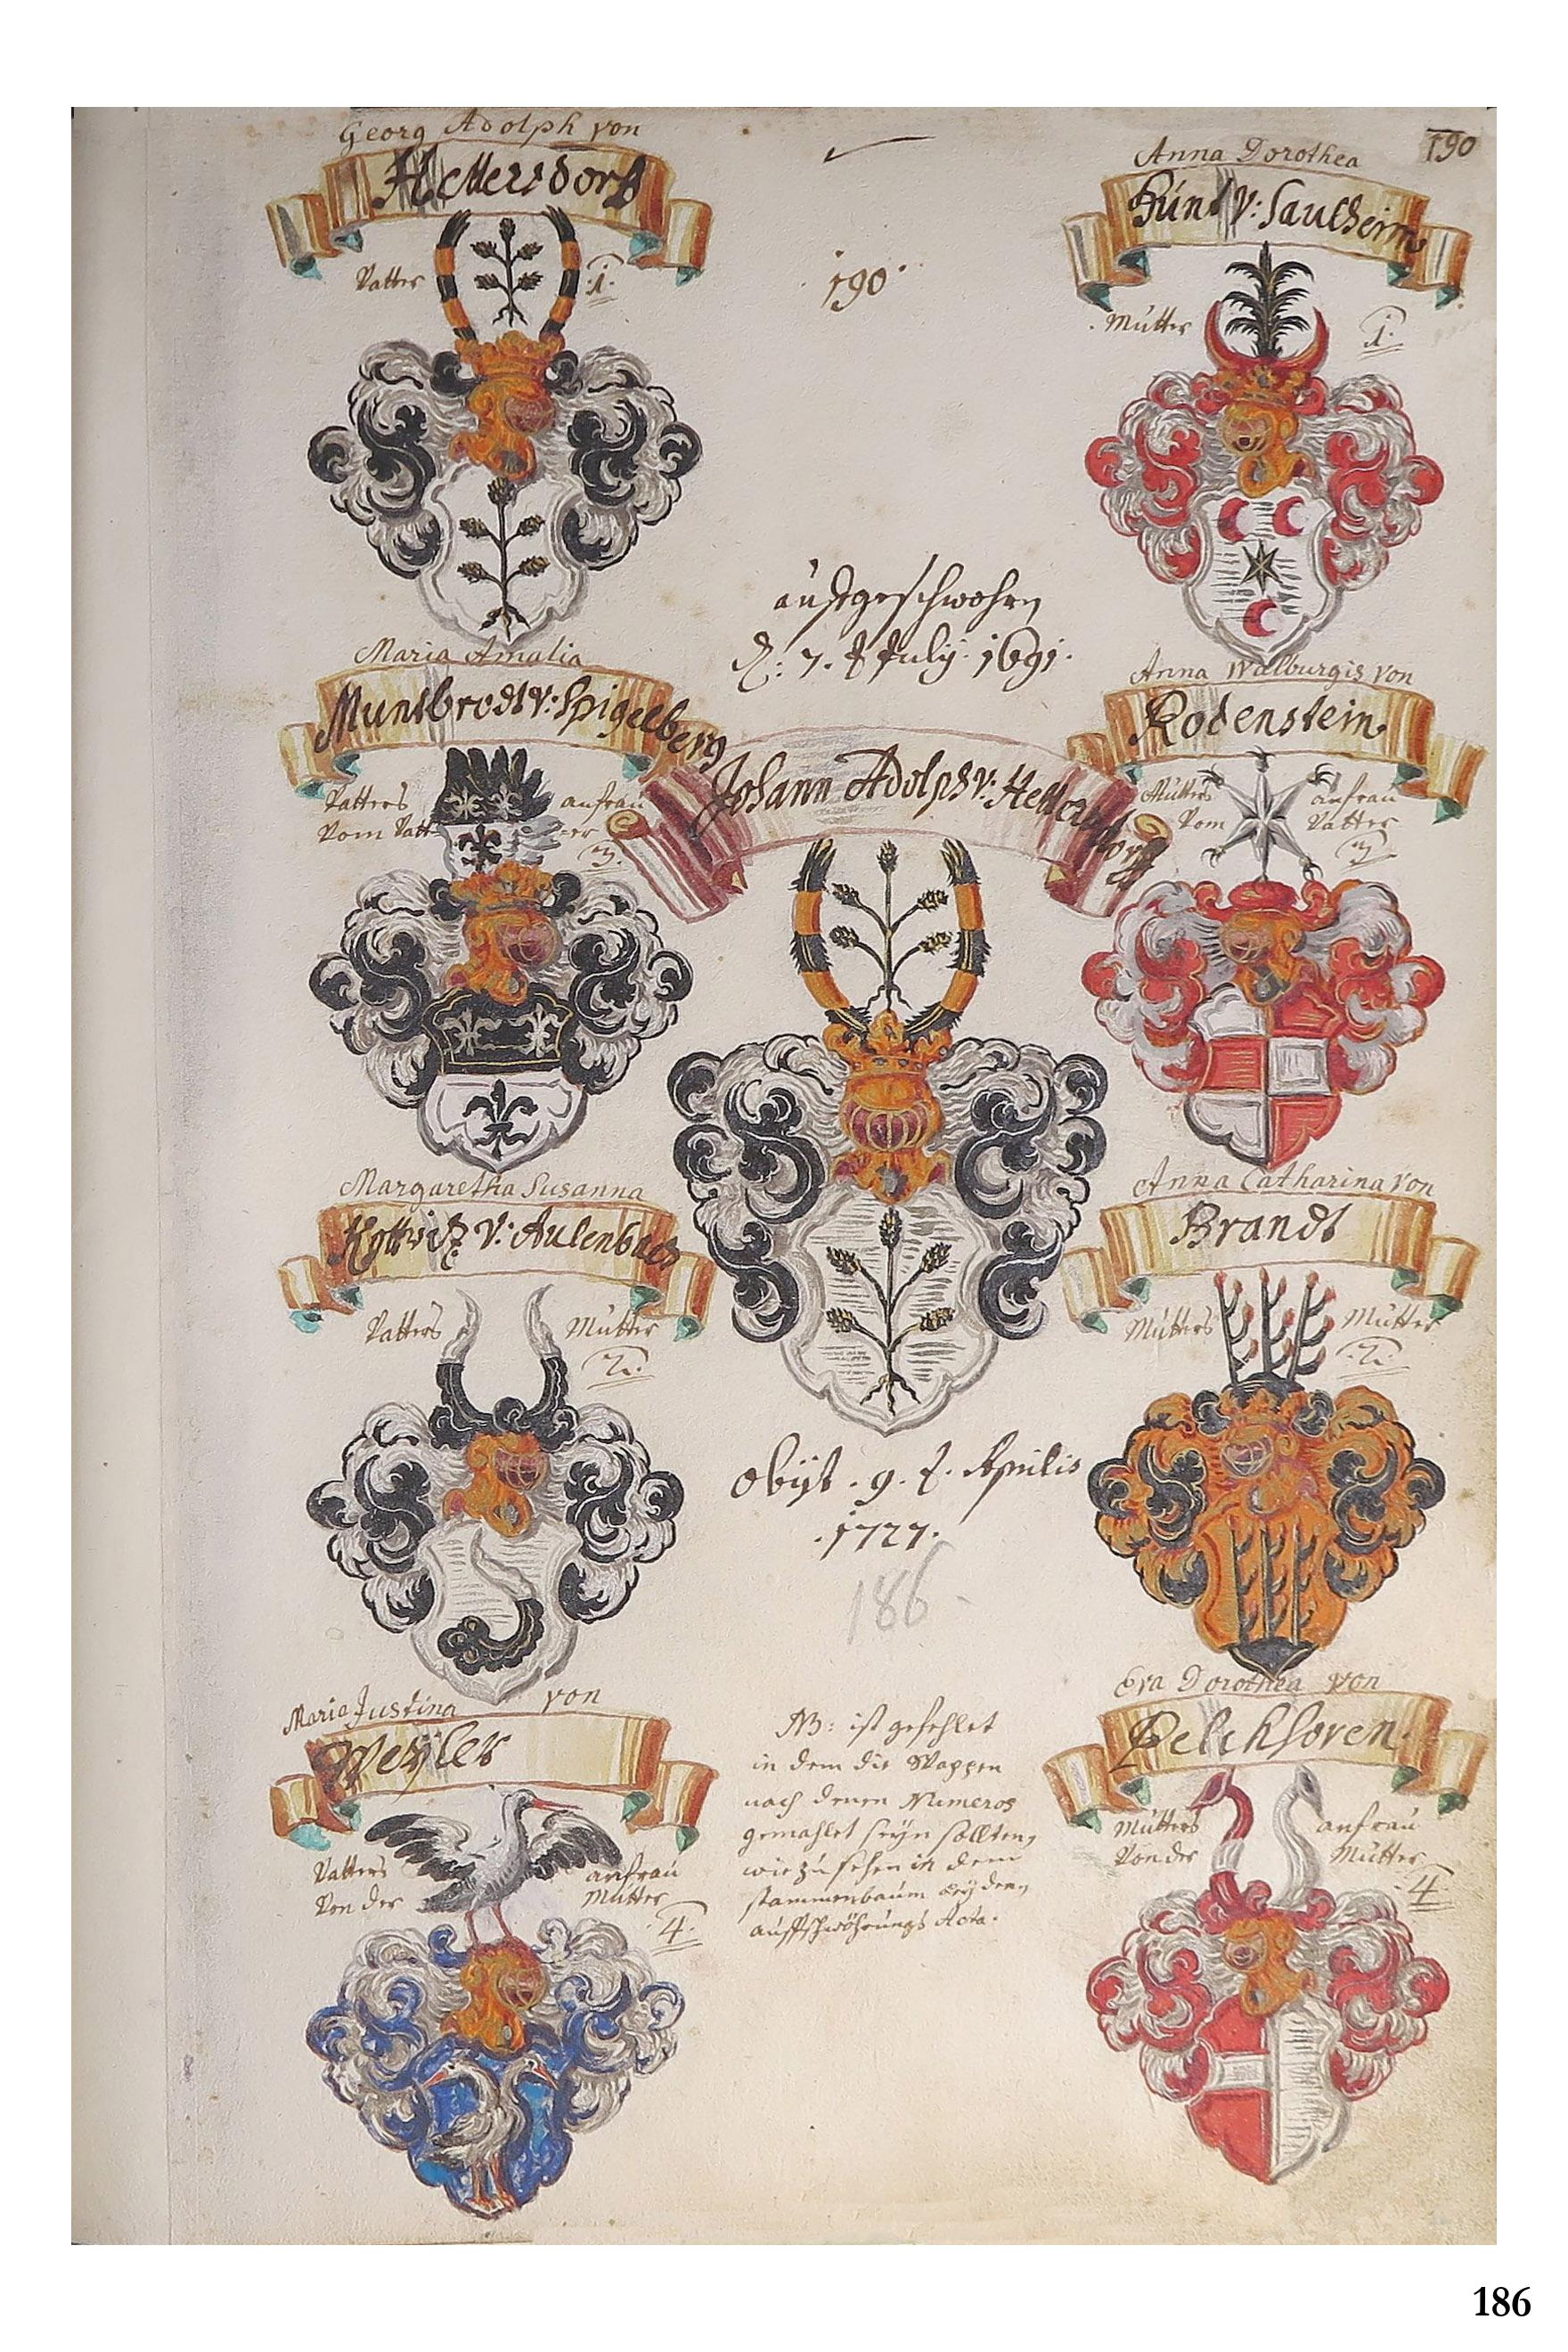 Georg Adolph von
Hettersdorff
Vatter
.1.
190
190.
Anna Dorothea
Hund v: Saulheim
Mutter
1.
auffgeschwohren
d: 7. t July. 1691.
Maria Amalia
Muntbrodt v: Spigelberg
Vatters anfrau
Vom Vatter
3.
Johann Adolph v: Hettersdorff
Anna Walburgis von
Rodenstein
Mutters anfrau
Vom Vatter
3
Margaretha Susanna
Kottwitz v: Aulenbach
Vatters Mutter
2.
Anna Catharina von
Brandt
Mutters Mutter
.2.
obijt . 9. t. Aprilis
.1727.
186
Maria Justina von
Weyler
Vatters anfrau
Von der Mutter
4.
NB: ist gefehlet
in dem die Wappen
nach denen Numeros
gemahlet seyn sollten,
wie zu sehen in dem
stammenbaum bey denen
auffschwöhrungs Acta.
Eva Dorothea von
Pelckhoven.
Mutters anfrau
Von der Mutter
4.
186